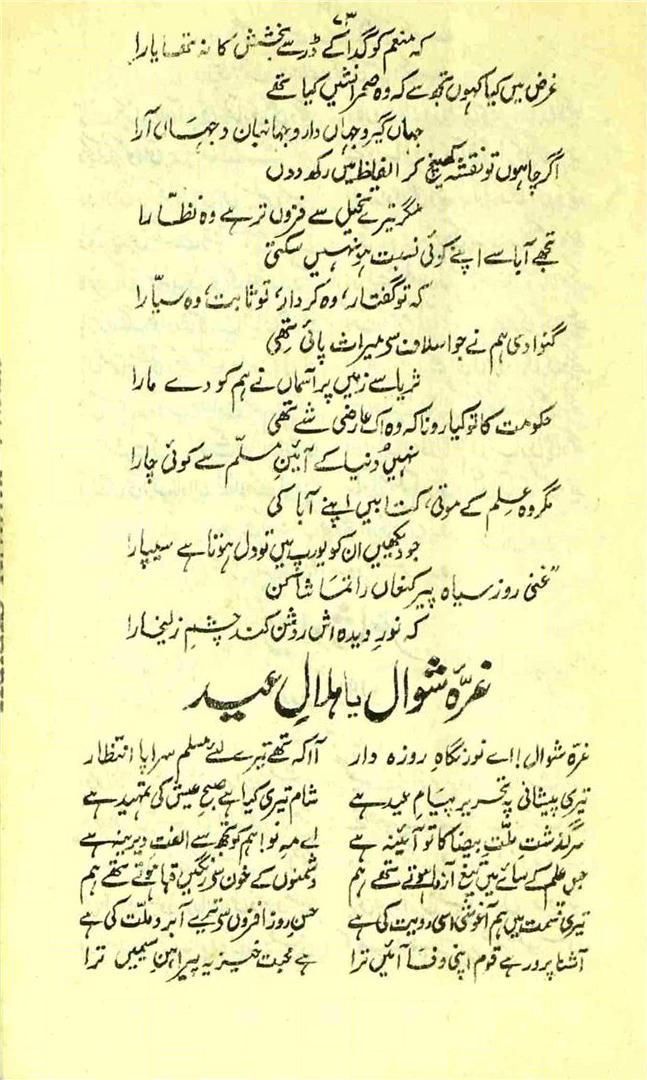 ۷۳
کہ منعم کو گدا کے ڈر سے بخشش کا نہ تھا یارا
غرض میں کیا کہوں تجھ سے کہ وہ صحرا نشیں کیا تھے
جہاں گیر و جہاں دار و جہانبان و جہاں آرا
اگر چاہوں تو نقشہ کھینچ کر الفاظ میں رکھ دوں
مگر تیرے تخیل سے فزوں تر ہے وہ نظّارا
تجھے آبا سے اپنے کوئی نسبت ہو نہیں سکتی
کہ تو گفتار، وہ کردار، تو ثابت، وہ سیّارا
گنوا دی ہم نے جو اسلاف سی میراث پائی تھی
ثریا سے زمیں پر آسماں نے ہم کو دے مارا
حکومت کا تو کیا رونا کہ وہ اک عارضی شے تھی
نہیں دنیا کے آئینِ مسلّم سے کوئی چارا
مگر وہ علم کے موتی، کتابیں اپنے آبا کی
جو دیکھیں ان کو یورپ میں تو دل ہوتا ہے سیپارا
"غنی روز سیاہ پیر کنعاں را تماشا کن
کہ نورِ دیدہ اش روشن کند چشمِ زلیخارا
غرّۂ شوال یا ہلالِ عید
غرّہ شوال! اے نورِ نگاہِ روزہ دار آ کہ تھے تیرے لئے مسلم سراپا انتظار
تیری پیشانی پہ تحریر پیامِ عید ہے شام تیری کیا ہے صبحِ عیش کی تمہید ہے
سرگذشت ملّتِ بیضا کا تو آئینہ ہے اے مہِ نو! ہم کو تجھ سے الفت دیرینہ ہے
جس علم کے سائے میں تیغ آزما ہوتے تھے ہم دشمنوں کے خون سی رنگیں قبا ہوتے تھے ہم
تیری قسمت میں ہم آغوشی اسی رویت کی ہے حسنِ روز افزوں سی تیرے آبرو ملّت کی ہے
آشنا پرور ہے قوم اپنی وفا آئیں ترا ہے محبت خیز یہ پیراہنِ سیمیں ترا